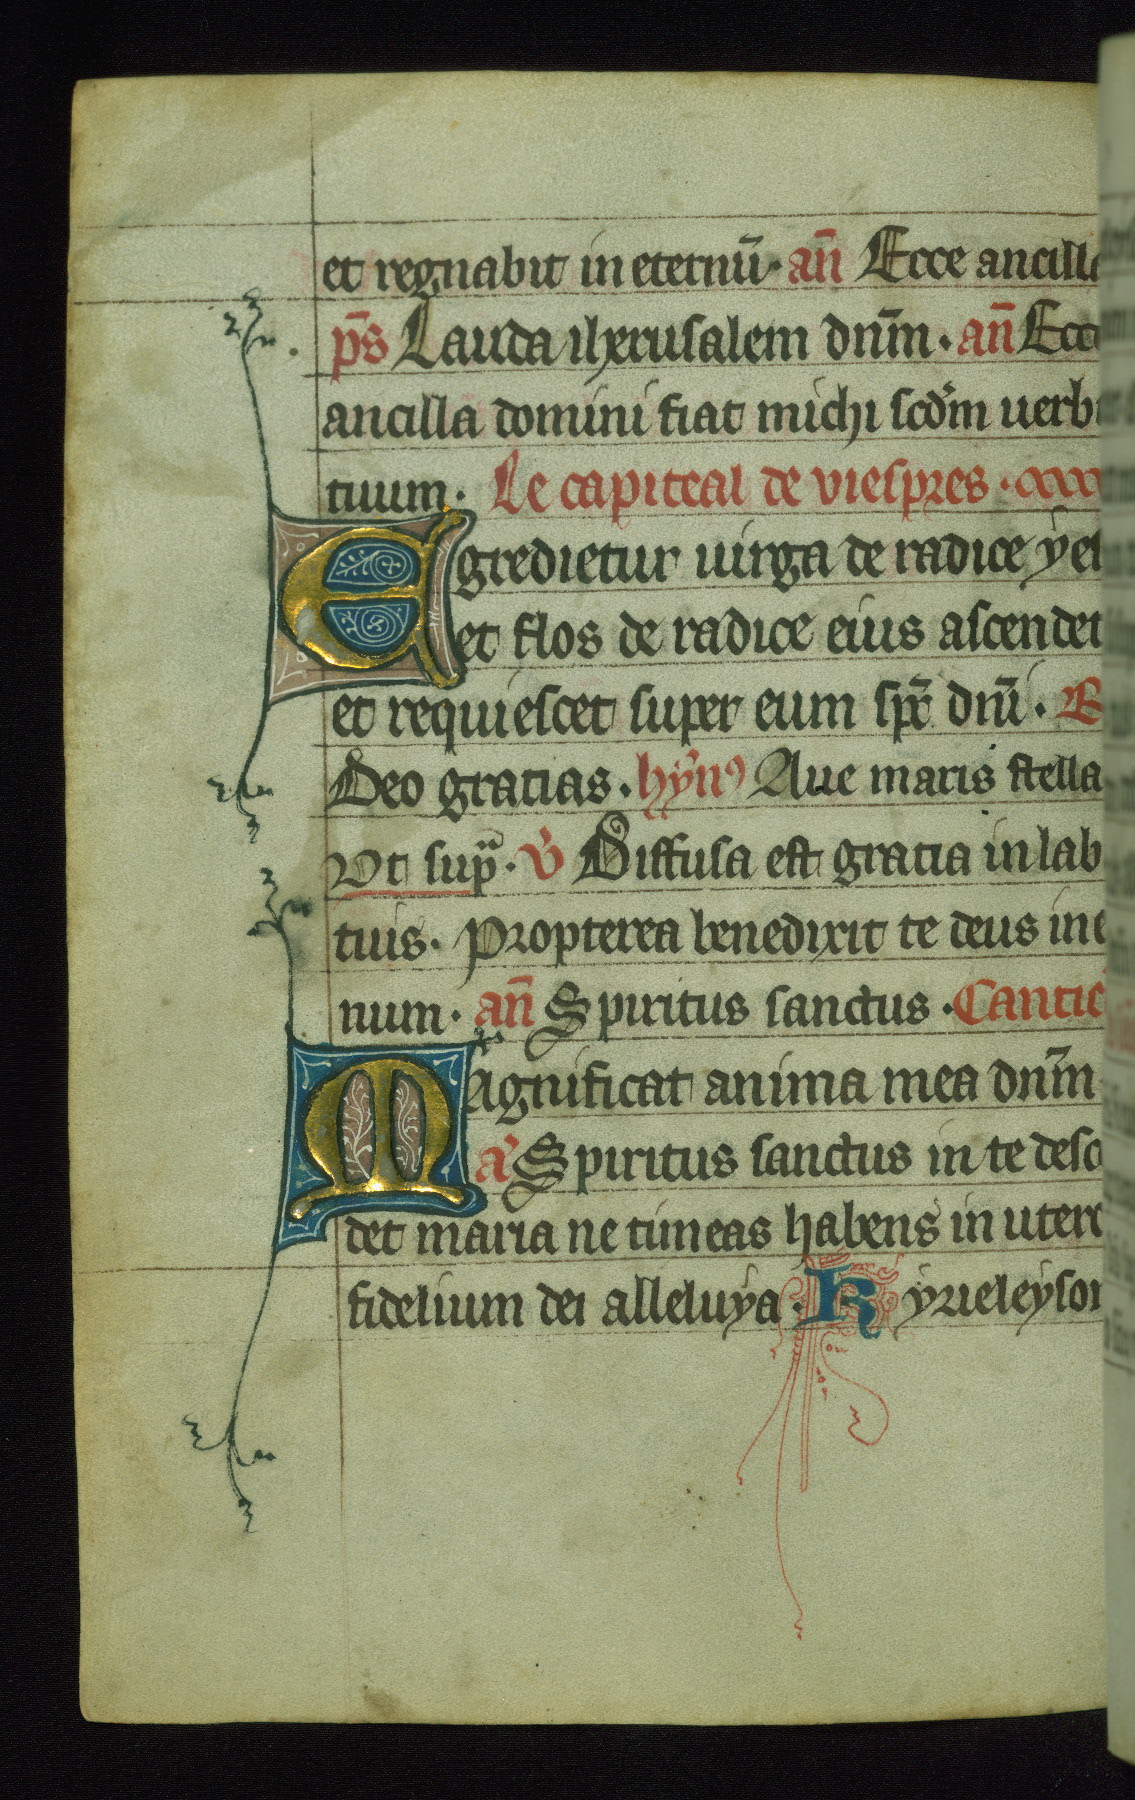 et regnabit in eternū· an̄ Ecce ancilla
ps̄ Lauda iherusalem dn̄m· an̄ Ecce
ancilla domini fiat michi scd̄m uerbu
tuum· Le capiteal de viespres·
Egredietur uirga de radice yes
et flos de radice eius ascendet
et requiescet super eum spc̄ dn̄i· R
Deo gracias· hyn᷒ Aue maris stella
Vt sup̄· v̄ Diffusa est gracia in lab
tuis· Propterea benedixit te deus in e
num· an̄ Spiritus sanctus· Cantic
Magnificat anima mea dn̄m
a᷒ Spiritus sanctus in te desc
det maria ne timeas habens in utero
fidelium dei alleluya· Kyrieleyson